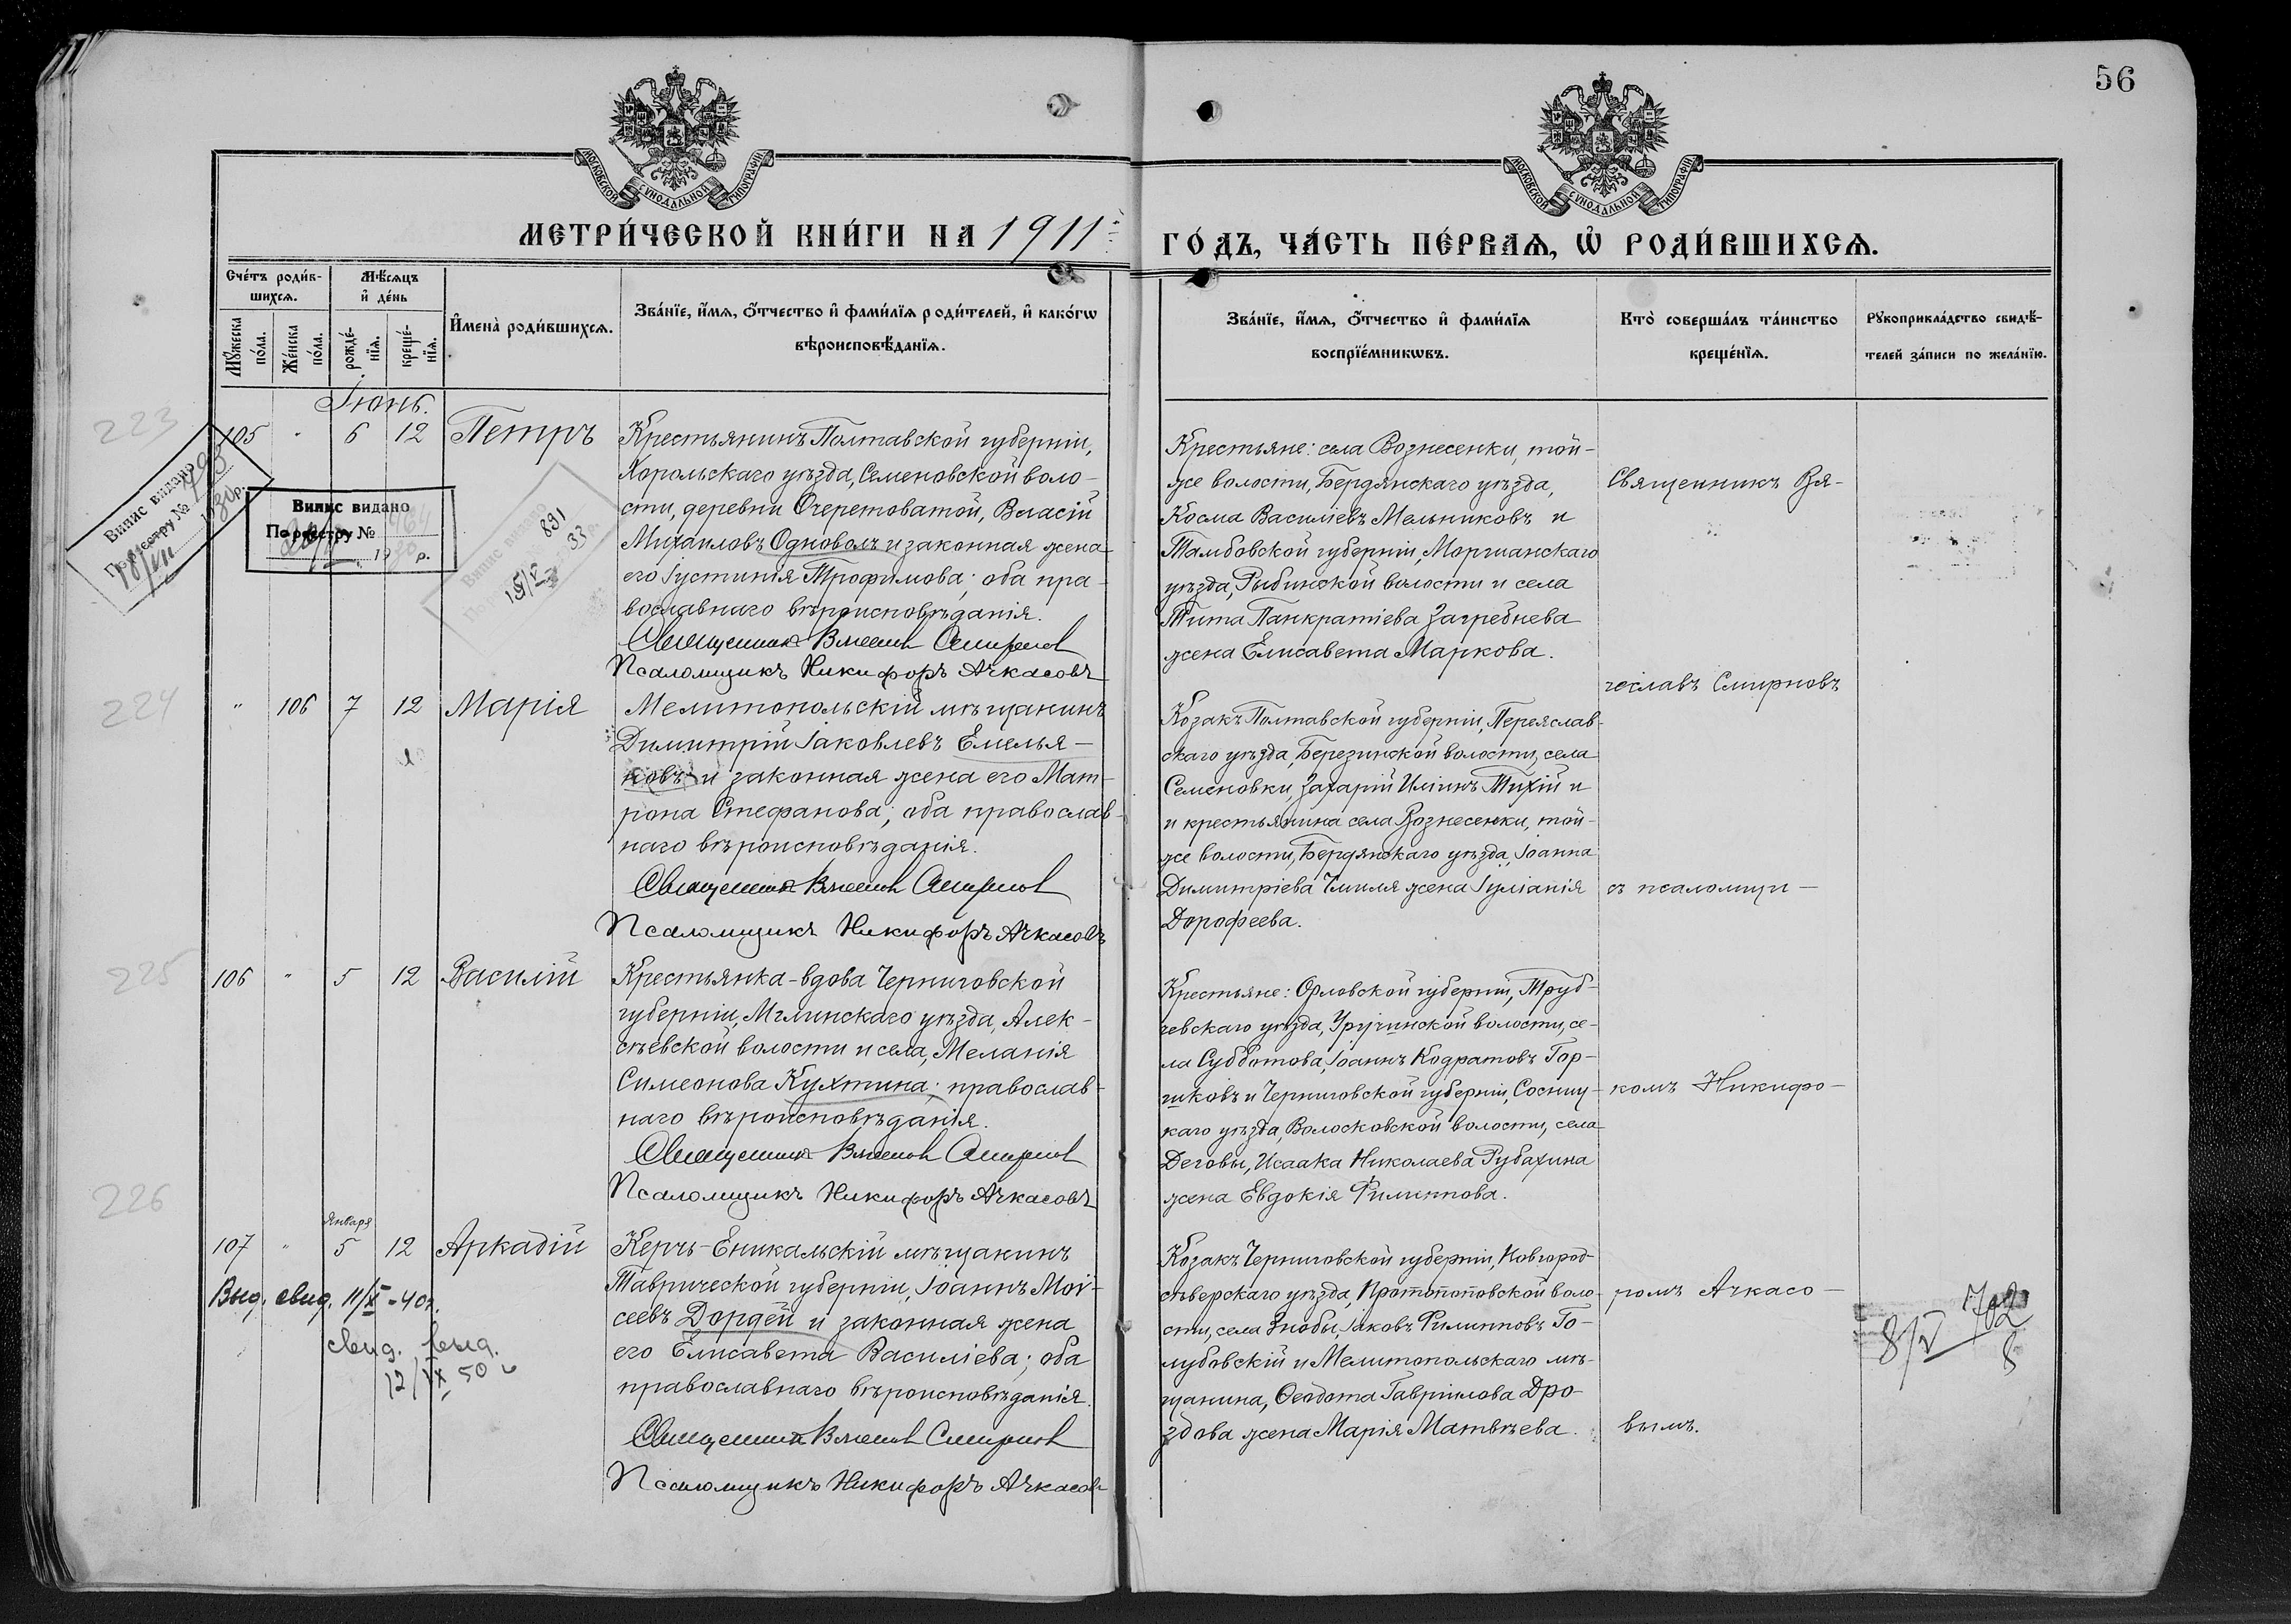 56
МОСКОВСКОЙ СѴНОДАЛЬНОЙ ТИПОГРАФІИ
МОСКОВСКОЙ СѴНОДАЛЬНОЙ ТИПОГРАФІИ
МЕТРИ́ЧЕСКОЙ КНИ́ГИ НА 1911
ГО́ДЪ, ЧА́СТЬ ПЕ́РВАѦ, Ѡ҆ РОДИ́ВШИХСѦ.
Сче́тъ роди́в-
шихсѧ.
Мꙋ́жеска по́ла.
Же́нска по́ла.
Мѣ́сѧцъ
и҆ де́нь
рожде́-
нїѧ.
креще́-
нїѧ.
И҆мена̀ роди́вшихсѧ.
Зва́нїе, и҆́мѧ, ѻ҆́тчество и҆ фами́лїѧ роди́телей, и҆ како́гѡ
вѣроисповѣ́данїѧ.
Зва́нїе, и҆́мѧ, ѻ҆́тчество и҆ фами́лїѧ
воспрїе́мникѡвъ.
Кто̀ соверша́лъ та́инство
креще́нїѧ.
Рꙋкоприкла́дство свидѣ́-
телей за́писи по жела́нїю.
Іюнь.
223
105 " 6 12 Петръ
Крестьянинъ Полтавской губерніи,
Хорольскаго уѣзда, Семеновской воло-
сти, деревни Очеретоватой, Власій
Михаиловъ Одноволъ и законная жена
его Іустинія Трофимова; оба пра-
вославнаго вѣроисповѣданія.
Священникъ Вячеслав Смирнов
Псаломщикъ Никифоръ Ачкасовъ
Крестьяне: села Вознесенки, той-
же волости, Бердянскаго уѣзда,
Косма Василіевъ Мельниковъ и
Тамбовской губерніи, Моршанскаго
уѣзда, Рыбинской волости и села
Тита Панкратіева Загребнева
жена Елисавета Маркова.
Священникъ Вя-
Випис видано
По реєстру №
Випис видано
По реєстру №
19 р.
Випис видано
891
33
224
" 106 7 12 Марія
Мелитопольскій мѣщанинъ
Димитрій Іаковлевъ Емелья-
новъ и законная жена его Мат-
рона Стефанова; оба православ-
наго вѣроисповѣданія.
Священникъ Вячеслав Смирнов
Псаломщикъ Никифоръ Ачкасовъ
Козакъ Полтавской губерніи, Переяслав-
скаго уѣзда, Березинской волости, села
Семеновки, Захарій Иліинъ Тихій и
и крестьянина села Вознесенки, той-
же волости, Бердянскаго уѣзда, Іоанна
Димитріева Чмиля жена Іуліанія
Дорофеева.
чеславъ Смирновъ
съ псаломщи-
225
106 " 5 12 Василій
Крестьянка-вдова Черниговской
губерніи, Мглинскаго уѣзда, Алек-
сѣевской волости и села, Меланія
Симеонова Кухтина; православ-
наго вѣроисповѣданія.
Священникъ Вячеслав Смирнов
Псаломщикъ Никифоръ Ачкасовъ
Крестьяне: Орловской губерніи, Труб-
чевскаго уѣзда, Уручинской волости, се-
ла Субботова, Іоаннъ Кодратовъ Гор-
шковъ и Черниговской губерніи, Сосниц-
каго уѣзда, Волосковской волости, села
Деговы, Исаака Николаева Рубахина
жена Евдокія Филиппова.
комъ Никифо-
226
Января
107 " 5 12 Аркадій
Выд. свид. 11/X-40г.
свид. выд.
12/IX 50
Керчь-Еникальскій мѣщанинъ
Таврической губерніи, Іоаннъ Мои-
сеевъ Дордей и законная жена
его Елисавета Василіева; оба
православнаго вѣроисповѣданія.
Священникъ Вячеслав Смирнов
Псаломщикъ Никифоръ Ачкасов
Козакъ Черниговской губерніи, Новгород-
сѣверскаго уѣзда, Протопоповской воло-
сти, села Знобы, Іаковъ Филипповъ Го-
лубовскій и Мелитопольскаго мѣ-
щанина, Ѳеодота Гавріилова Дро-
здова жена Марія Матвѣева.
ромъ Ачкасо-
вымъ.
702
8/V 8